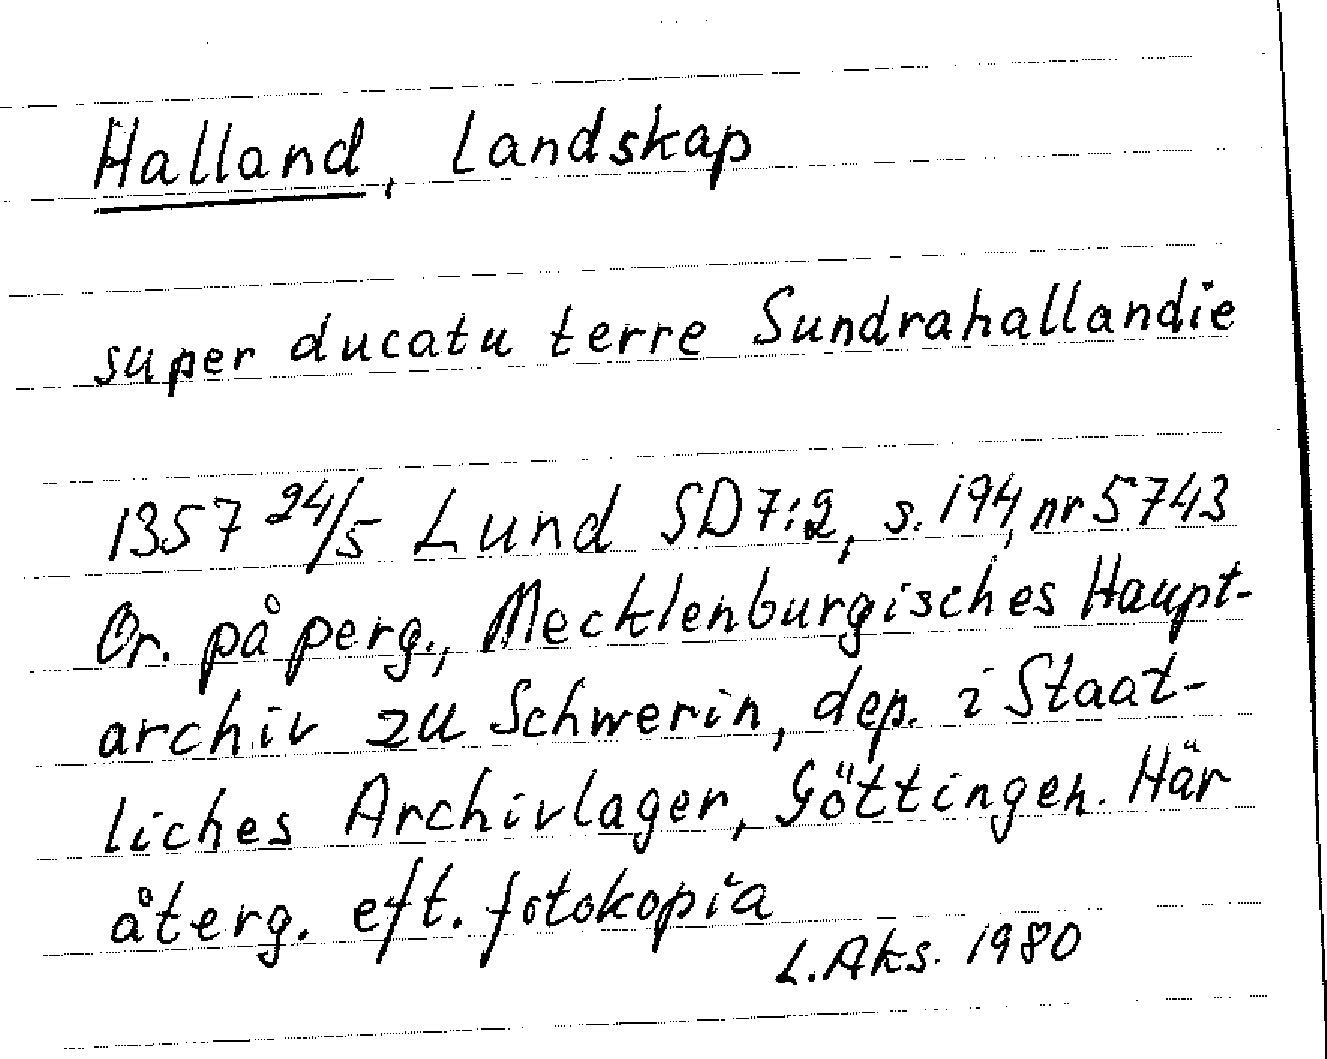 Halland, Landskap
super ducatu terre Sundrahallandie
1357 24/5 Lund SD 7:2, s. 194, nr 5743
Or. på perg., Mecklenburgisches Haupt-
archiv zu Schwerin, dep. i Staat-
liches Archivlager, Göttingen. Här
återg. eft. fotokopia
L. Aks. 1980